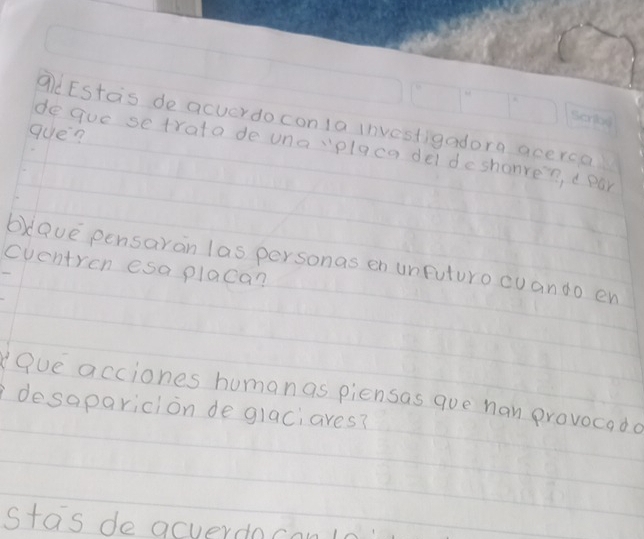 a)¿Estás de acuerdo con la investigadora acerca
de que se trata de una "placa del deshonre"?, ¿por
que?
b)¿Qué pensarán las personas en un futuro cuando en
cuentren esa placa?
¿Qué acciones humanas piensas que han provocado
desaparición de glaciares?
stás de acuerdo con la